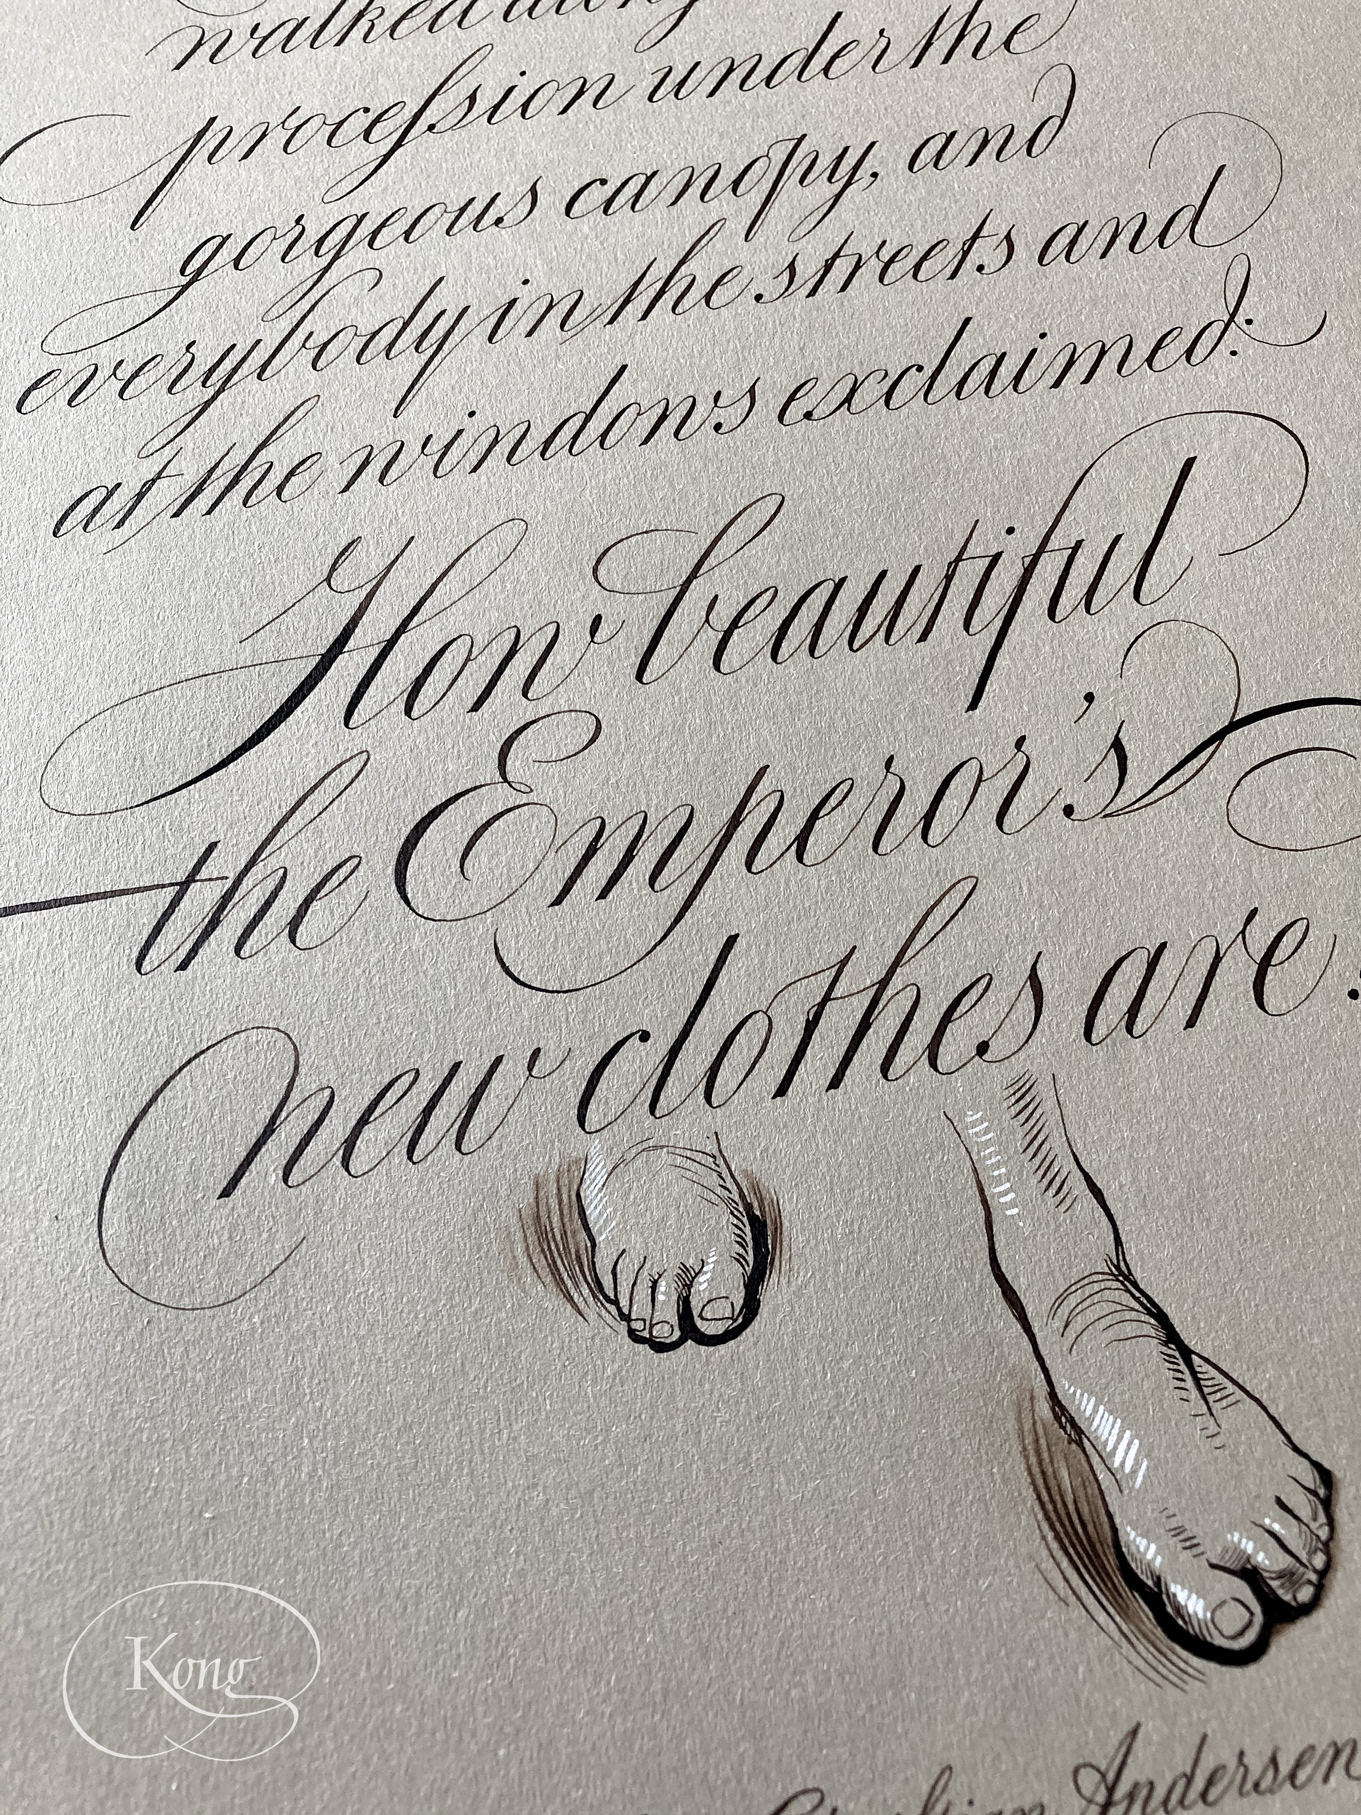 walked along
procession under the
gorgeous canopy, and
everybody in the streets and
at the windows exclaimed:
How beautiful
the Emperor's
new clothes are
Kong
Christian Andersen